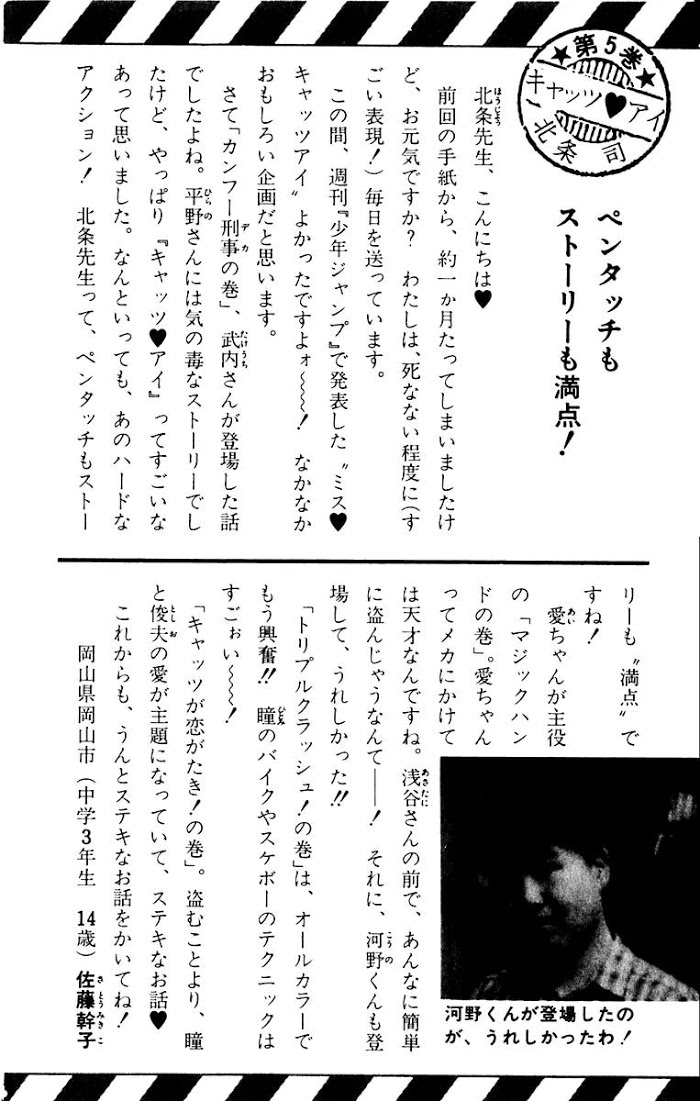 ★第5巻★
キャッツ♥アイ
北条 司
ペンタッチも
ストーリーも満点!
北条先生、こんにちは♥
前回の手紙から、約一か月たってしまいましたけ
ど、お元気ですか? わたしは、死なない程度に(す
ごい表現!)毎日を送っています。
この間、週刊『少年ジャンプ』で発表した〝ミス♥
キャッツアイ〟よかったですよォ〜〜〜! なかなか
おもしろい企画だと思います。
さて「カンフー刑事の巻」、武内さんが登場した話
でしたよね。平野さんには気の毒なストーリーでし
たけど、やっぱり『キャッツ♥アイ』ってすごいな
あって思いました。なんといっても、あのハードな
アクション! 北条先生って、ペンタッチもストー
リーも〝満点〟で
すね!
愛ちゃんが主役
の「マジックハン
ドの巻」。愛ちゃん
ってメカにかけて
は天才なんですね。浅谷さんの前で、あんなに簡単
に盗んじゃうなんて――! それに、河野くんも登
場して、うれしかった!!
「トリプルクラッシュ!の巻」は、オールカラーで
もう興奮!! 瞳のバイクやスケボーのテクニックは
すごぉい〜〜〜!
「キャッツが恋がたき!の巻」。盗むことより、瞳
と俊夫の愛が主題になっていて、ステキなお話♥
これからも、うんとステキなお話をかいてね!
岡山県岡山市(中学3年生 14歳)佐藤幹子
河野くんが登場したの
が、うれしかったわ!